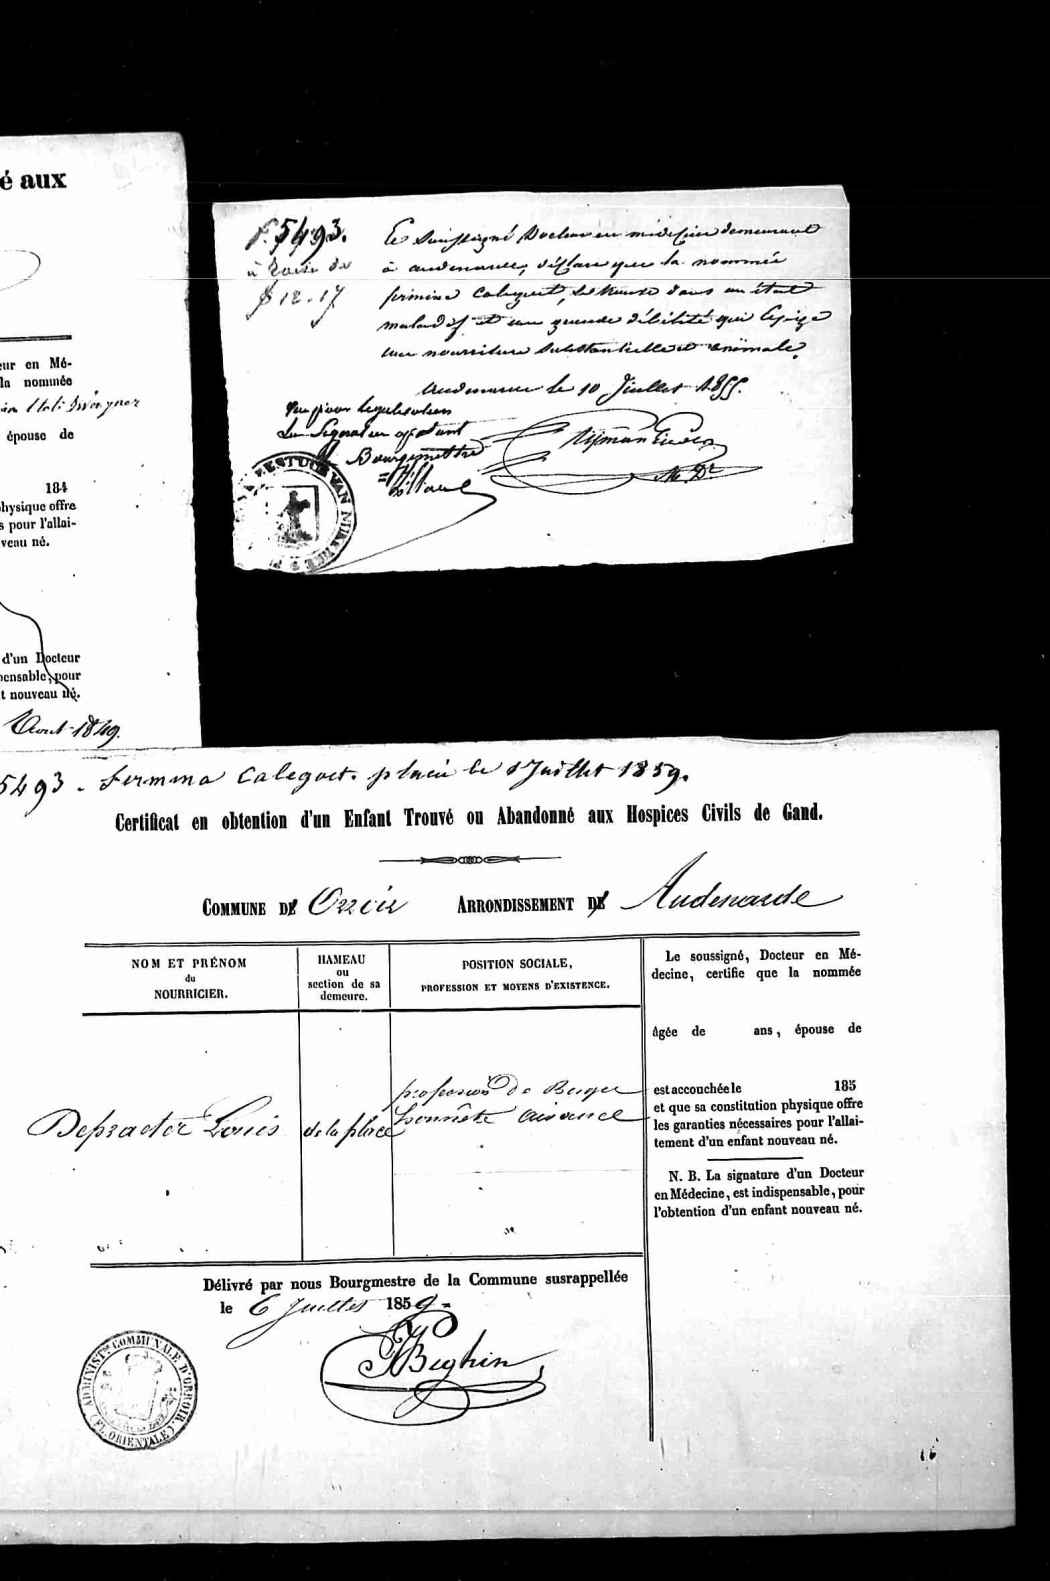 é aux
eur en Mé-
la nommée
épouse de
184
physique offre
s pour l'allai-
veau né.
d'un Docteur
pensable, pour
t nouveau né.
Aout 1849.
F. 5493.
à raison de
12.17
Le Soussigné Docteur en médecine demeurant
à audenarde, déclare que la nommée
firmina Calegoet, se trouve dans un état
maladif et une grande débilité qui Exige
une nourriture Substantielle et animale.
Audenarde le 10 Juillet 1855.
Vu pour legalisation
Bourgmestre
M. Dr
5493. firmina Calegoet. placée le 8 Juillet 1859.
Certificat en obtention d'un Enfant Trouvé ou Abandonné aux Hospices Civils de Gand.
COMMUNE DE Orroir ARRONDISSEMENT DE Audenarde
NOM ET PRÉNOM
du
NOURRICIER.
HAMEAU
ou
section de sa
demeure.
POSITION SOCIALE,
PROFESSION ET MOYENS D'EXISTENCE.
Depraeter Louis
de la place
profession de Berger
honnête aisance
Le soussigné, Docteur en Mé-
decine, certifie que la nommée
âgée de ans, épouse de
est accouchée le 185
et que sa constitution physique offre
les garanties nécessaires pour l'allai-
tement d'un enfant nouveau né.
N. B. La signature d'un Docteur
en Médecine, est indispensable, pour
l'obtention d'un enfant nouveau né.
Délivré par nous Bourgmestre de la Commune susrappellée
le 6 Juillet 1859
Beghin
ADMINIST.on COMMUNALE D'ORROIR.
(FL. ORIENTALE)